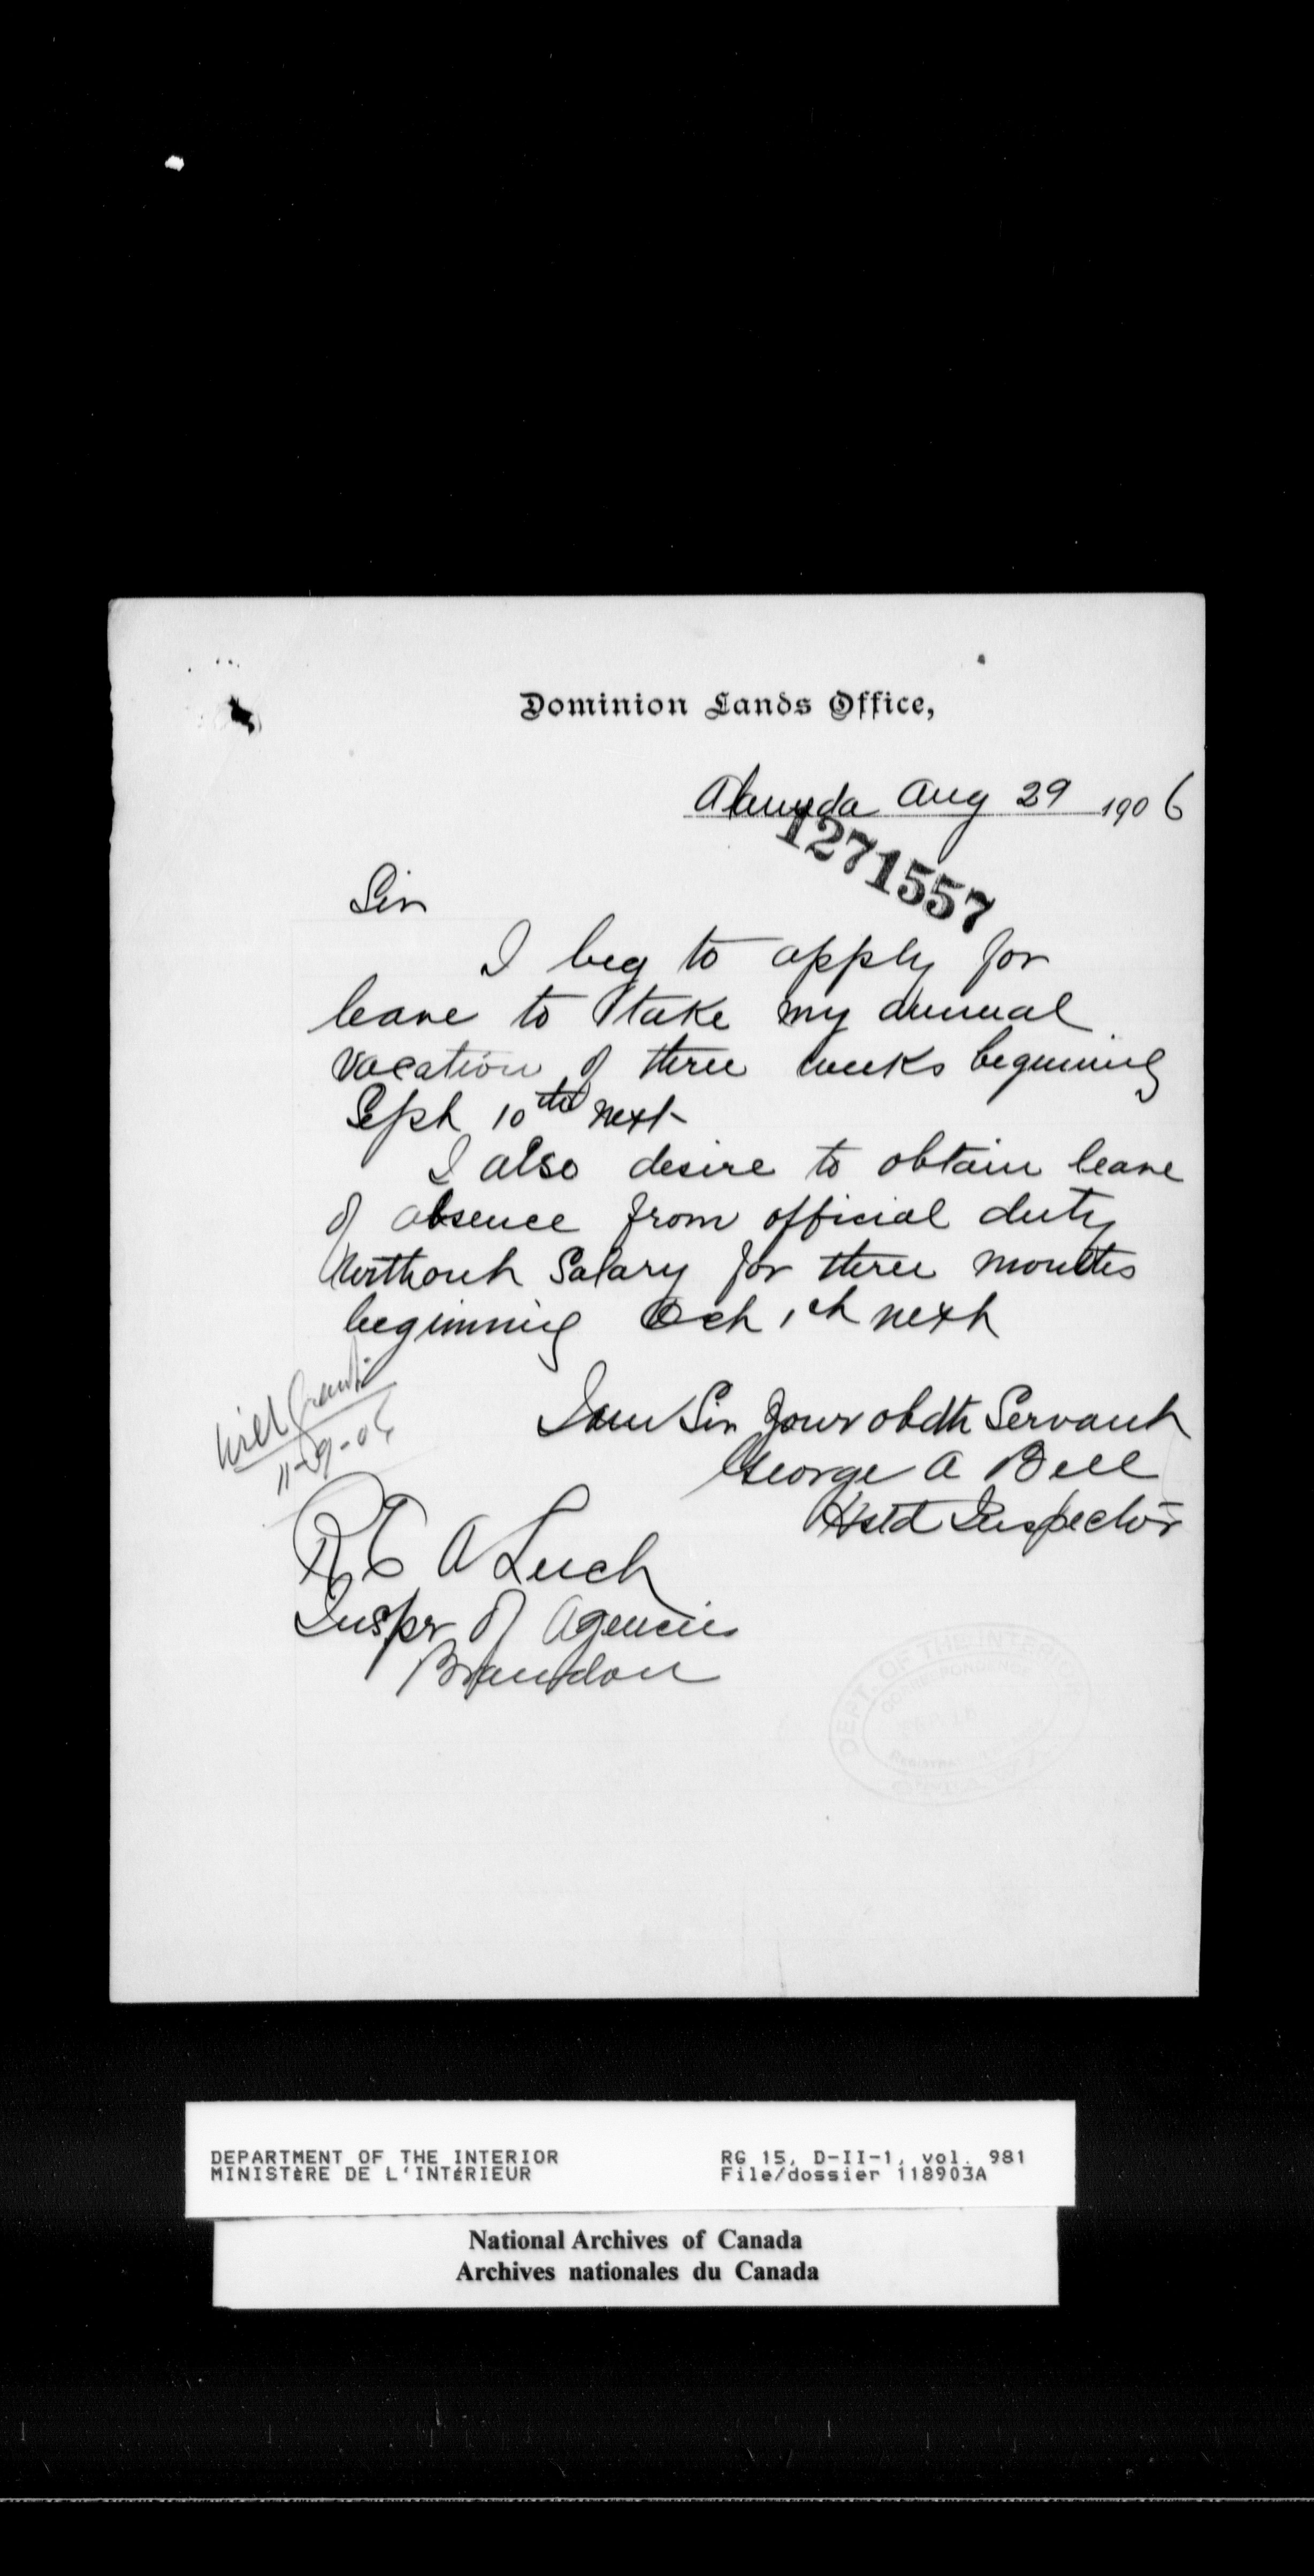 Dominion Lands Office,
Alameda Aug 29 1906
1271557
Sir
I beg to apply for
leave to take my annual
vacation of three weeks beginning
Sept 10th next
I also desire to obtain leave
of absence from official duty
without Salary for three months
beginning Oct 1st next
I am Sir your obdt Servant
George A Bell
Hstd Inspector
Will
11-9-06
R E A Leech
Inspr of Agencies
Brandon
DEPT. OF THE INTERIOR
DEPARTMENT OF THE INTERIOR
MINISTÈRE DE L'INTÉRIEUR
RG 15, D-II-1, vol. 981
File/dossier 118903A
National Archives of Canada
Archives nationales du Canada